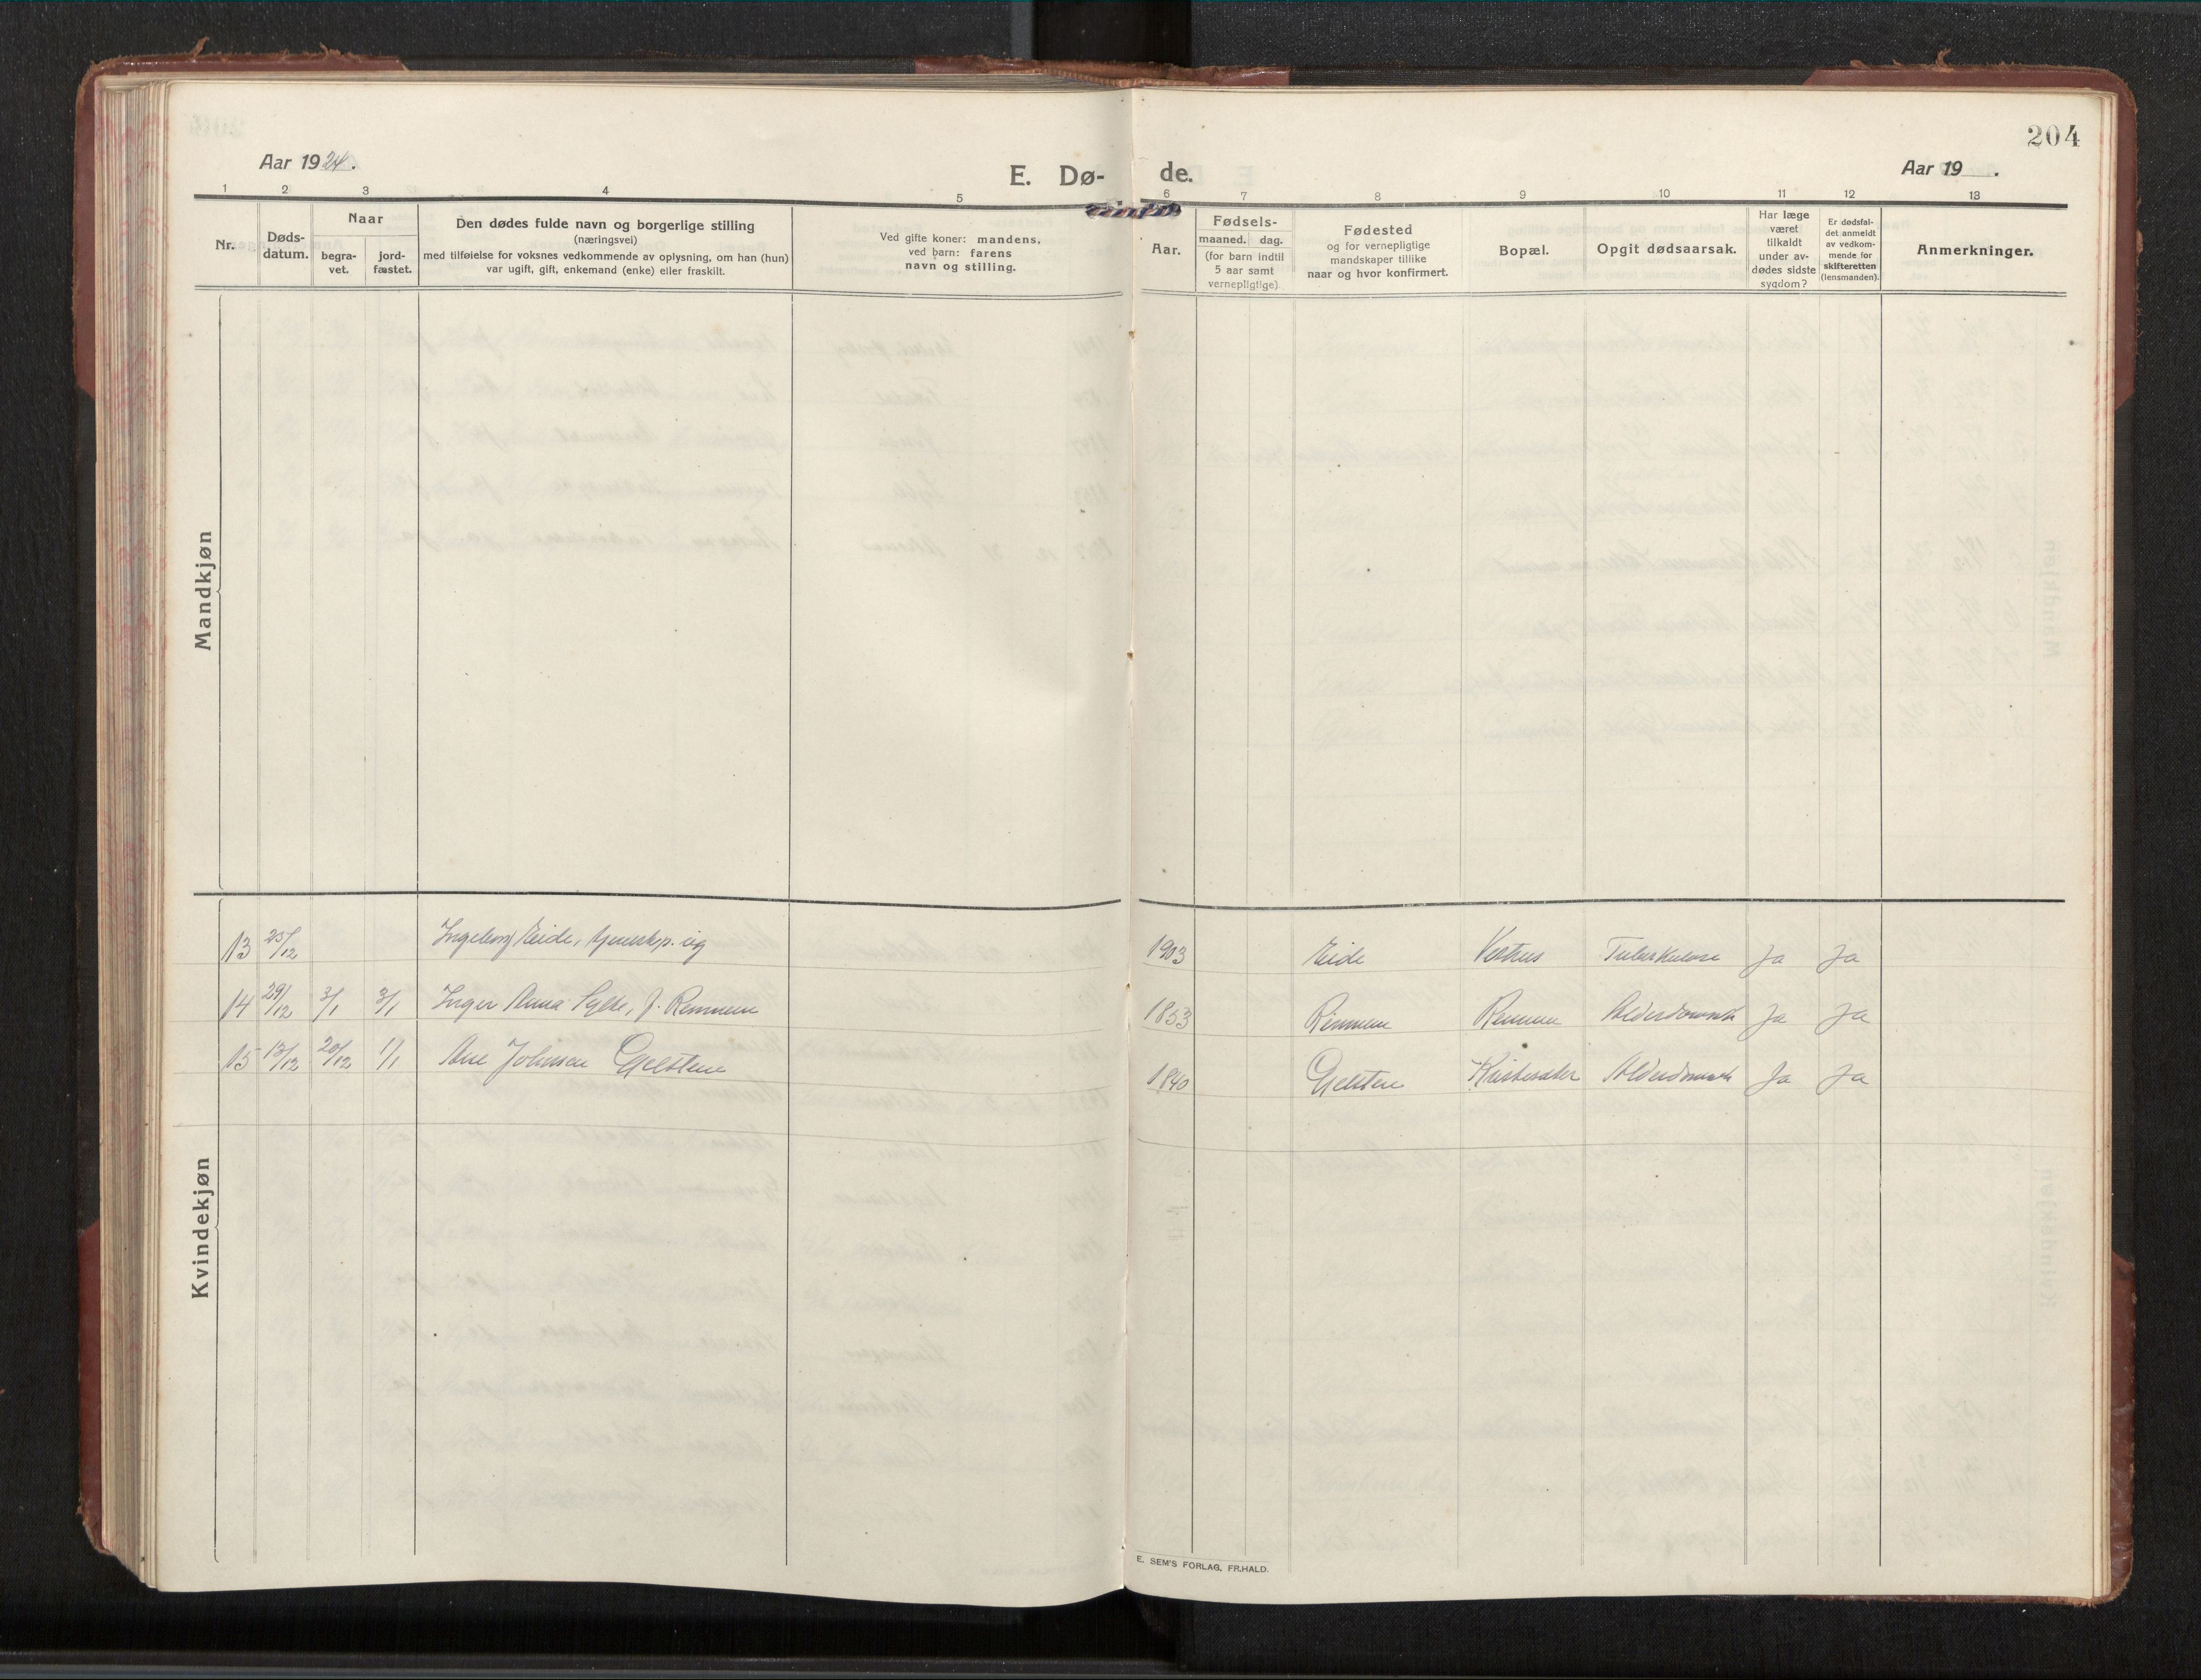 204
Aar 1924.
E. Dø- de.
Aar 19 .
1 2 3 4 5 6 7 8 9 10 11 12 13
Nr.
Døds-
datum.
Naar
begra-
vet.
jord-
fæstet.
Den dødes fulde navn og borgerlige stilling
(næringsvei)
med tilføielse for voksnes vedkommende av oplysning, om han (hun)
var ugift, gift, enkemand (enke) eller fraskilt.
Ved gifte koner: mandens,
ved barn: farens
navn og stilling.
Aar.
Fødsels-
maaned. dag.
(for barn indtil
5 aar samt
vernepligtige)
Fødested
og for vernepligtige
mandskaper tillike
naar og hvor konfirmert.
Bopæl.
Opgit dødsaarsak.
Har læge
været
tilkaldt
under av-
dødes sidste
sygdom?
Er dødsfal-
det anmeldt
av vedkom-
mende for
skifteretten
(lensmanden).
Anmerkninger.
Mandkjøn
Kvindekjøn
13 25/12 Ingeborg Eide, ug 1903 Eide Tuberkulose Ja Ja
14 29/12 3/1 3/1 Inger Anna Sylte, f. Remmem 1853 Remmem Remmem Alderdomssv Ja Ja
15 13/12 20/12 1/1 Ane Johnsen Gjelsten 1840 Gjelsten Alderdomssv Ja Ja
E. SEM'S FORLAG, FR.HALD.